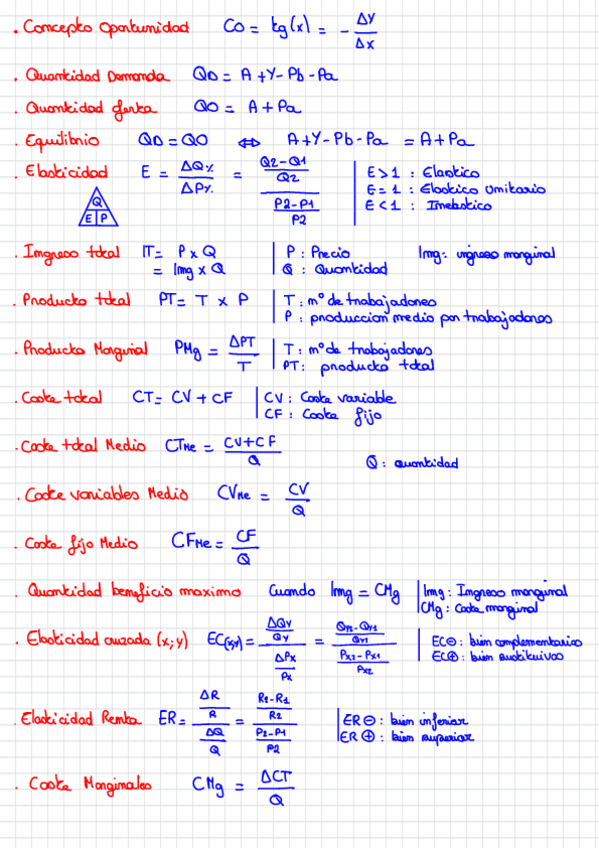 . Concepto Oportunidad CO = tg(x) = - ΔY/ΔX
. Quantidad Demanda QD = A + Y - Pb - Pa
. Quantidad oferta QO = A + Pa
. Equilibrio QD = QO ⇔ A + Y - Pb - Pa = A + Pa
. Elasticidad E = ΔQ%/ΔP% = ((Q2-Q1)/Q2)/((P2-P1)/P2) | E > 1 : Elastico
E = 1 : Elastico Unitario
E < 1 : Inelastico
Q
E P
. Ingreso total IT = P x Q | P : Precio Img : ingreso marginal
= Img x Q | Q : Quantidad
. Producto total PT = T x P | T : nº de trabajadores
P : produccion medio por trabajadores
. Producto Marginal PMg = ΔPT/T | T : nº de trabajadores
PT : producto total
. Coste total CT = CV + CF | CV : Coste variable
CF : Coste fijo
. Coste total Medio CTMe = (CV+CF)/Q Q : quantidad
. Coste variables Medio CVMe = CV/Q
. Coste fijo Medio CFMe = CF/Q
. Quantidad beneficio maximo Cuando Img = CMg | Img : Ingreso marginal
CMg : Coste marginal
. Elasticidad cruzada (x;y) EC(x,y) = (ΔQY/QY)/(ΔPx/Px) = ((QY2-QY1)/QY2)/((Px2-Px1)/Px2) | EC⊖ : bien complementario
EC⊕ : bien sustitutivos
. Elasticidad Renta ER = (ΔR/R)/(ΔQ/Q) = ((R2-R1)/R2)/((P2-P1)/P2) | ER⊖ : bien inferior
ER⊕ : bien superior
. Coste Marginales CMg = ΔCT/Q